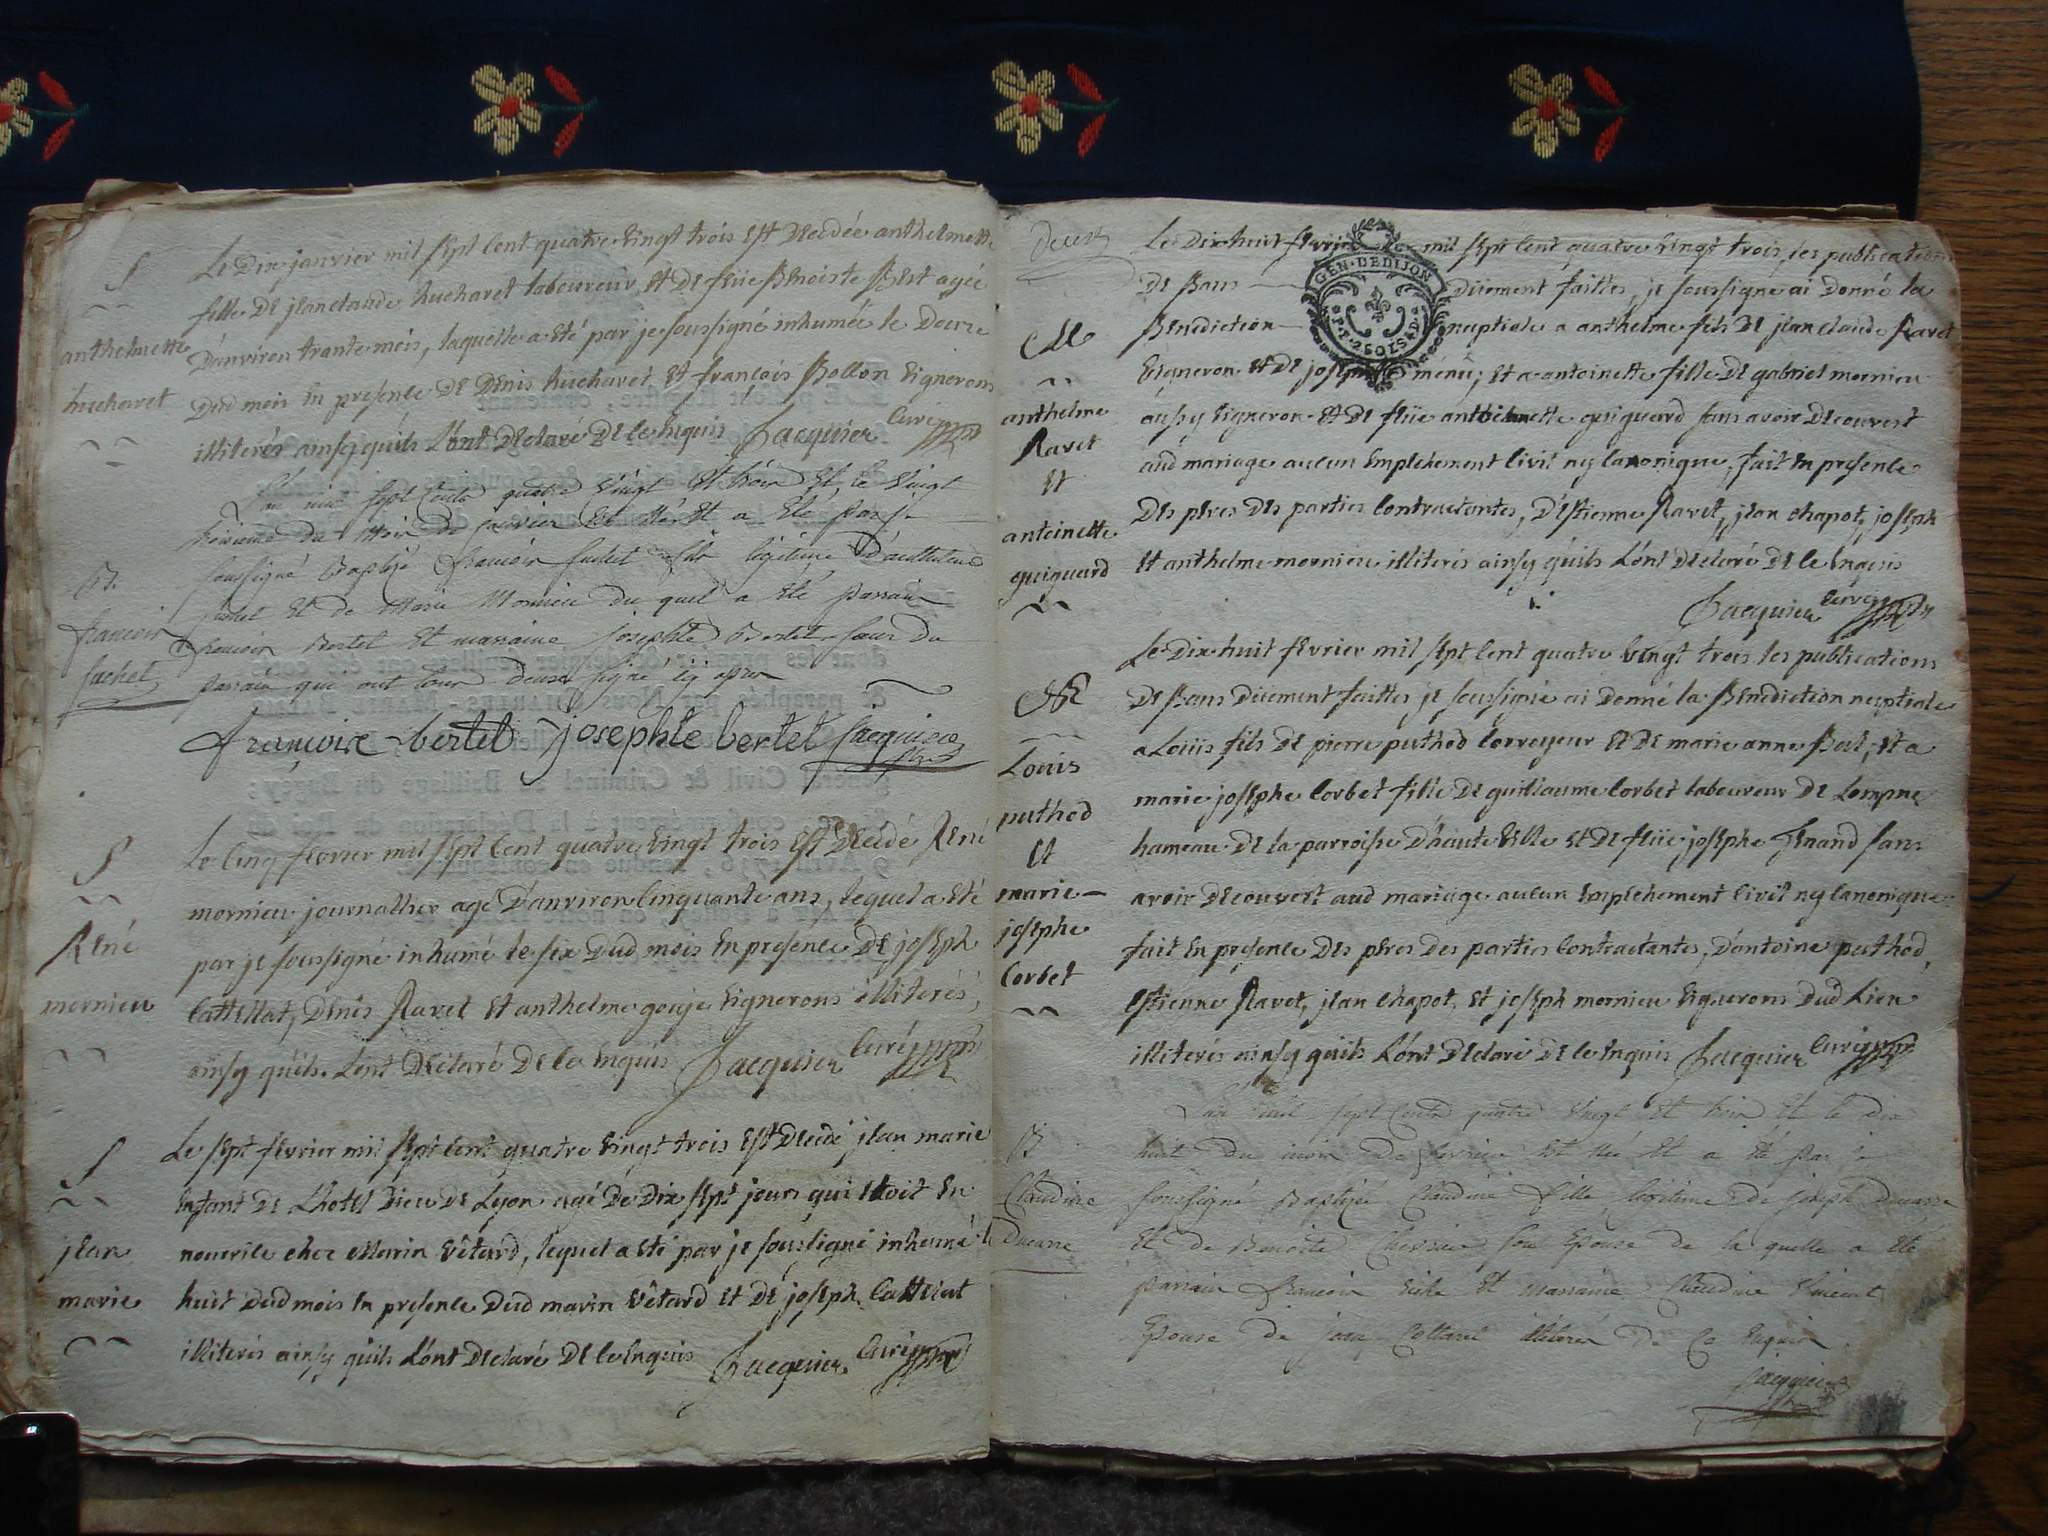 S
anthelmette
hucharet
Le Dix janvier mil sept cent quatre vingt trois est decédée anthelmette
fille de jean claude hucharet laboureur et de feüe Benoiste Best agée
d'anviron trante mois, laquelle a été par je soussigné inhumée le douze
dud mois en presence de Denis hucharet et françois Bollon vignerons
illiterés ainsy quils L'ont déclaré de ce enquis Jacquier curé
B.
francois
fachet
L'an mil sept cents quatre vingt et trois et le vingt
troisieme du mois de janvier est né et a été par je
soussigné Baptisé francois fachet fils légitime
fachet et de Marie Mornieu du quel a été parrain
francois Bertet et marraine josephte Bertet sœur du
parrain qui ont tous deux signé icy apres
françoise bertet josephte bertet jacquier
S
René
mornieu
Le cinq fevrier mil sept cent quatre vingt trois est decédé René
mornieu journallier agé d'anviron cinquante ans, lequel a été
par je soussigné inhumé le six dud mois en presence de joseph
Cattellat, Denis Ravet et anthelme gouje vignerons illiterés,
ainsy quils L'ont déclaré de ce enquis Jacquier curé
S
jean
marie
Le sept fevrier mil sept cent quatre vingt trois est decédé jean marie
enfant de L'hotel Dieu de Lyon agé de dix sept jours qui étoit en
nourrice chez Marin Vêtard, lequel a été par je soussigné inhumé le
huit dud mois en presence dud marin Vêtard et de joseph Cattelat
illiterés ainsy quils L'ont déclaré de ce enquis Jacquier curé
Deux
M
anthelme
Ravet
et
antoinette
guiguard
Le Dix huit fevrier mil sept cent quatre vingt trois, les publications
de Bans düement faittes, je soussigné ai donné la
Benediction nuptiale a anthelme fils de jean claude Ravet
vigneron et de menu; et a antoinette fille de gabriel mornieu
aussy vigneron et de feüe anthelmette guiguard sans avoir decouvert
aud mariage aucun empechement civil ny canonique, fait en presence
des peres des parties contractantes, d'Estienne Ravet, jean chapot, joseph
et anthelme mornieu illiterés ainsy quils L'ont déclaré de ce enquis
Jacquier curé
GEN. DE DIJON
2 SOLS
M
Louis
puthod
et
marie
josephe
Corbet
Le Dix huit fevrier mil sept cent quatre vingt trois les publications
de Bans düement faittes je soussigné ai donné la Benediction nuptiale
a Loüis fils de pierre puthod corroyeur et de marie anne Best, et a
marie josephe Corbet fille de guillaume Corbet laboureur de Lompne
hameau de la parroisse d'haute ville et de feüe josephe Jenand sans
avoir decouvert aud mariage aucun empechement civil ny canonique
fait en presence des peres des parties contractantes, d'antoine puthod,
Estienne Ravet, jean chapot, et joseph mornieu vignerons dud Lieu
illiterés ainsy quils L'ont déclaré de ce enquis Jacquier curé
B
Claudine
Ducarre
L'an mil sept cents quatre vingt et trois et le dix
huit du mois de fevrier est née et a été par je
soussigné Baptisée Claudine fille légitime de joseph Ducarre
et de Benoite Chevrier son Epouse de la quelle a été
parrain francois et marraine Claudine Vincent
Epouse de jean illiterés de ce enquis
jacquier